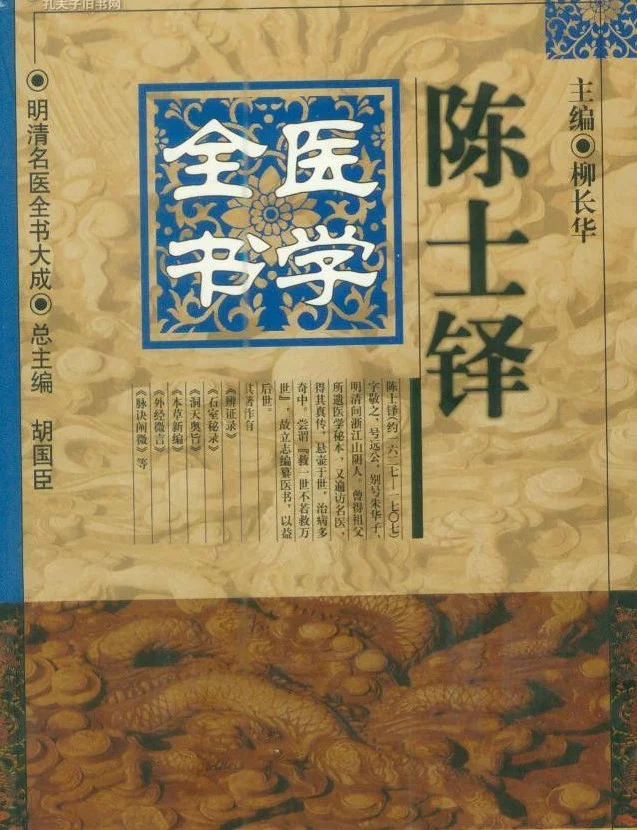 孔夫子旧书网
主编◉柳长华
陈士铎
医学
全书
陈士铎(约一六二七—一七〇七)
字敬之、号远公，别号朱华子，
明清间浙江山阴人。曾得祖父
所遗医学秘本，又遍访名医，
得其真传，悬壶于世，治病多
奇中。尝谓『救一世不若救万
世』，故立志编纂医书，以益
后世。
其著作有
《辨证录》
《石室秘录》
《洞天奥旨》
《本草新编》
《外经微言》
《脉诀阐微》等
◉明清名医全书大成◉总主编 胡国臣